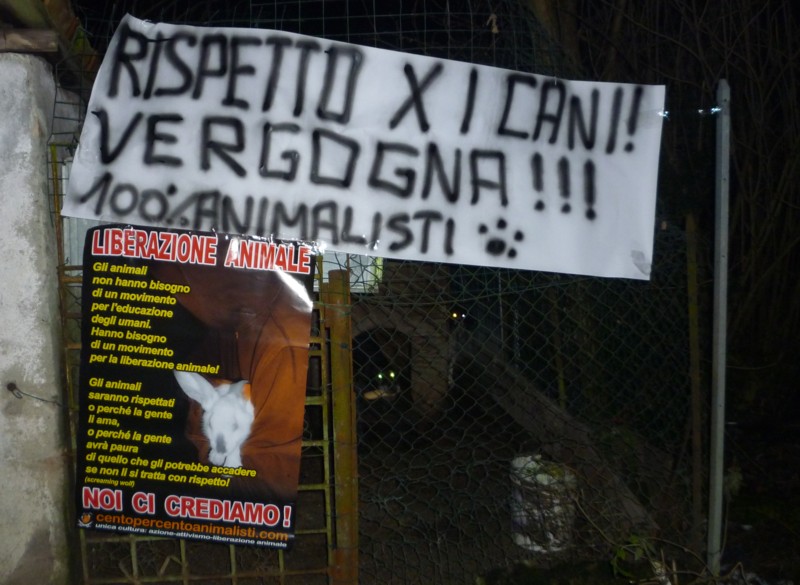 RISPETTO X I CANI!
VERGOGNA!!!
100% ANIMALISTI
LIBERAZIONE ANIMALE
Gli animali
non hanno bisogno
di un movimento
per l'educazione
degli umani.
Hanno bisogno
di un movimento
per la liberazione animale!
Gli animali
saranno rispettati
o perché la gente
li ama,
o perché la gente
avrà paura
di quello che gli potrebbe accadere
se non li si tratta con rispetto!
(screaming wolf)
NOI CI CREDIAMO!
centopercentoanimalisti.com
unica cultura: azione-attivismo-liberazione animale